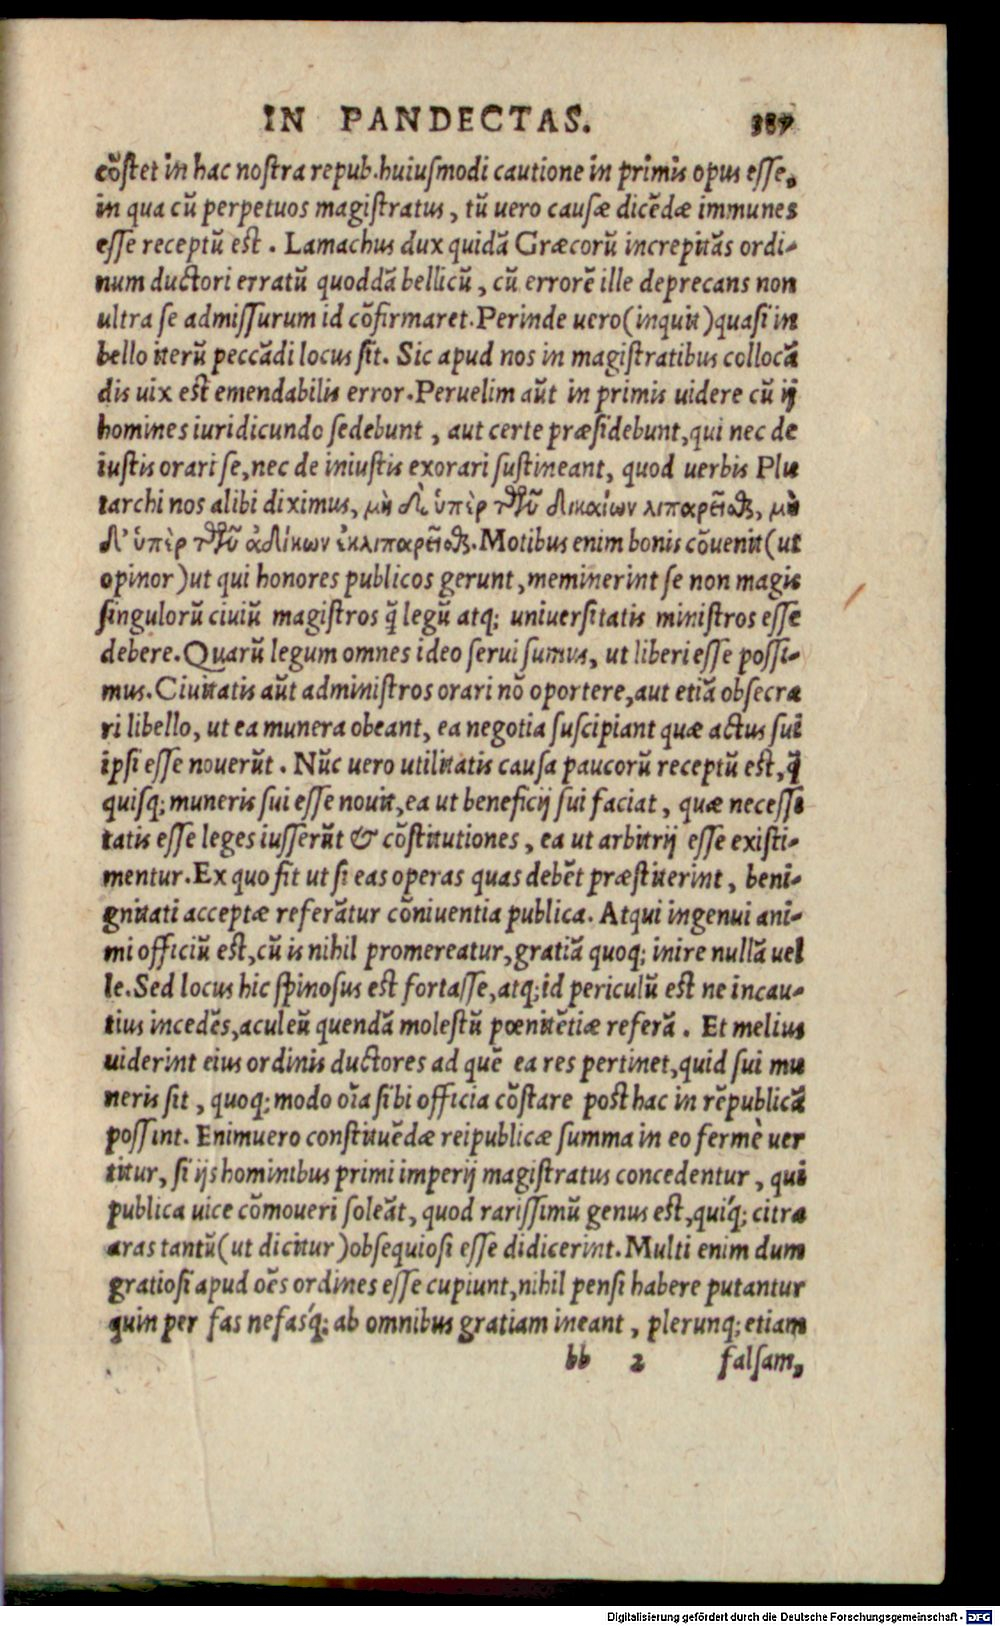 IN PANDECTAS. 387
cõſtet in hac noſtra repub.huiuſmodi cautione in primis opus eſſe,
in qua cũ perpetuos magiſtratus, tũ uero cauſæ dicẽdæ immunes
eſſe receptũ eſt. Lamachus dux quidã Græcorũ increpitãs ordi-
num ductori erratũ quoddã bellicũ, cũ errorẽ ille deprecans non
ultra ſe admiſſurum id cõfirmaret.Perinde uero(inquit)quaſi in
bello iterũ peccãdi locus ſit. Sic apud nos in magiſtratibus collocã
dis uix eſt emendabilis error.Peruelim aũt in primis uidere cũ ij
homines iuridicundo ſedebunt, aut certe præſidebunt,qui nec de
iuſtis orari ſe,nec de iniuſtis exorari ſuſtineant, quod uerbis Plu
tarchi nos alibi diximus, μὴ δὲ ὑπὲρ τῶν δικαίων λιπαρεῖσθαι, μὴ
δ' ὑπὲρ τῶν ἀδίκων ἐκλιπαρεῖσθαι.Motibus enim bonis cõuenit(ut
opinor)ut qui honores publicos gerunt,meminerint ſe non magis
ſingulorũ ciuiũ magiſtros q̃ legũ atq; uniuerſitatis miniſtros eſſe
debere.Quarũ legum omnes ideo ſerui ſumus, ut liberi eſſe poſſi-
mus.Ciuitatis aũt adminiſtros orari nõ oportere,aut etiã obſecra
ri libello, ut ea munera obeant, ea negotia ſuſcipiant quæ actus ſui
ipſi eſſe nouerũt. Nũc uero utilitatis cauſa paucorũ receptũ eſt,q̃
quiſq; muneris ſui eſſe nouit,ea ut beneficij ſui faciat, quæ neceſſi
tatis eſſe leges iuſſerũt & cõſtitutiones, ea ut arbitrij eſſe exiſti-
mentur.Ex quo fit ut ſi eas operas quas debẽt præſtiterint, beni-
gnitati acceptæ referãtur cõniuentia publica. Atqui ingenui ani-
mi officiũ eſt,cũ is nihil promereatur,gratiã quoq; inire nullã uel
le.Sed locus hic ſpinoſus eſt fortaſſe,atq;id periculũ eſt ne incau-
tius incedẽs,aculeũ quendã moleſtũ pœnitẽtiæ referã. Et melius
uiderint eius ordinis ductores ad quẽ ea res pertinet,quid ſui mu
neris ſit, quoq;modo oĩa ſibi officia cõſtare poſt hac in rẽpublicã
poſſint. Enimuero conſtituẽdæ reipublicæ ſumma in eo fermè uer
titur, ſi ijs hominibus primi imperij magiſtratus concedentur, qui
publica uice cõmoueri ſoleãt, quod rariſſimũ genus eſt,quíq; citra
aras tantũ(ut dicitur)obſequioſi eſſe didicerint.Multi enim dum
gratioſi apud oẽs ordines eſſe cupiunt,nihil penſi habere putantur
quin per fas nefásq; ab omnibus gratiam ineant, plerunq; etiam
bb 2 falſam,
Digitalisierung gefördert durch die Deutsche Forschungsgemeinschaft - DFG